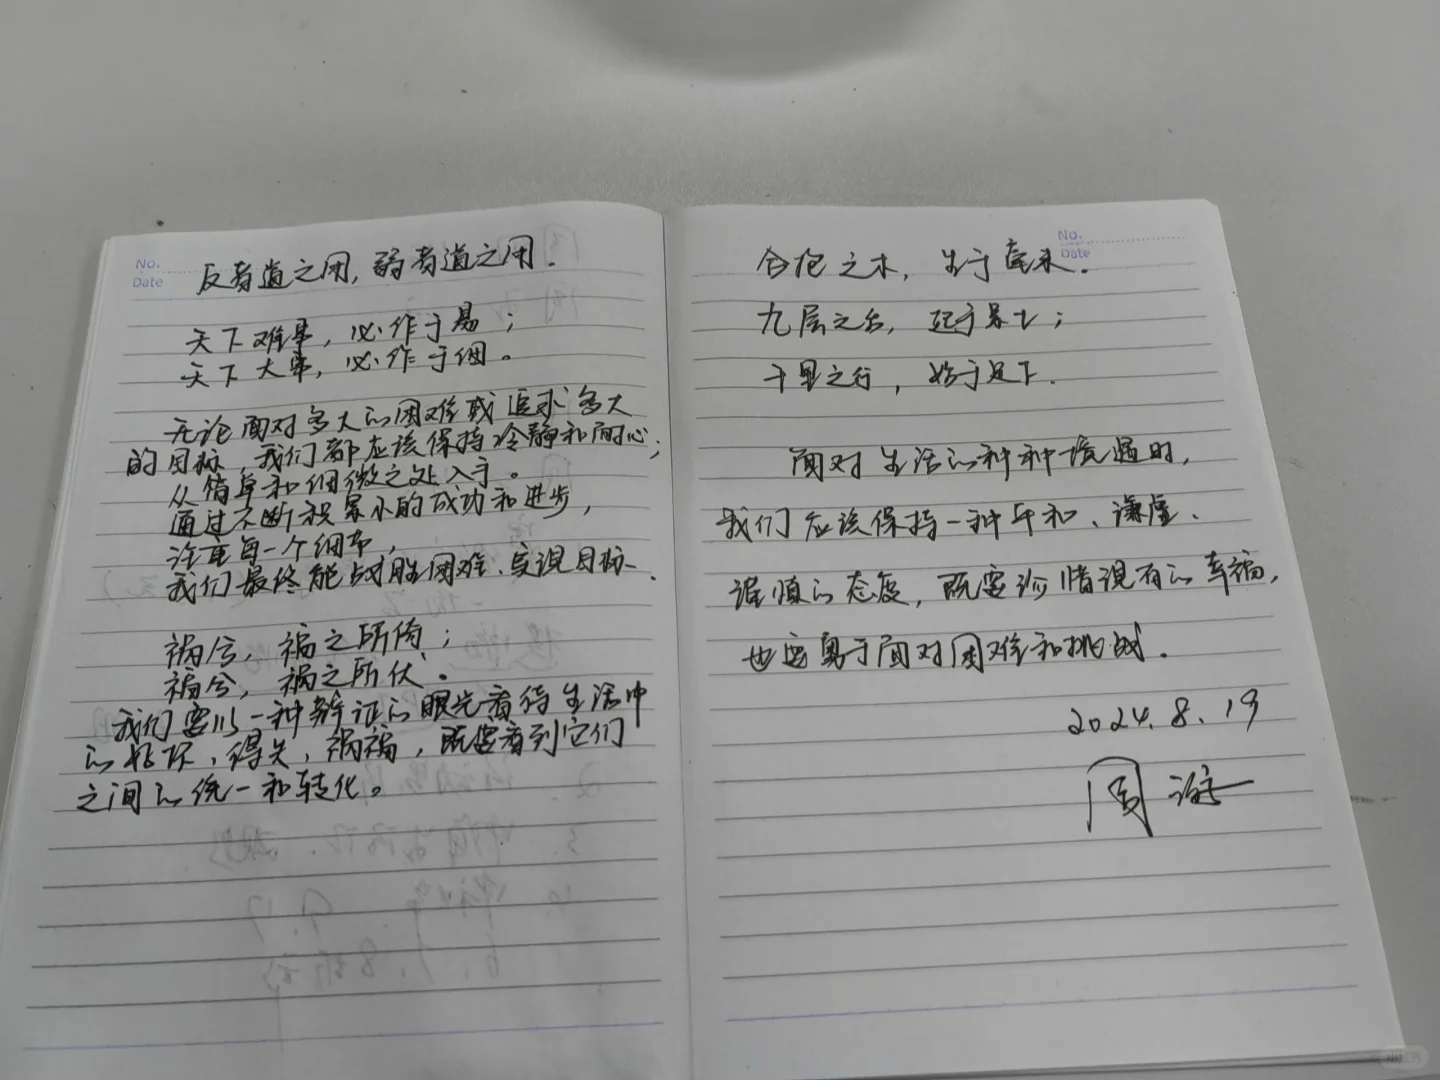 No.
Date
反者道之用，弱者道之用．
天下难事，必作于易；
天下大事，必作于细。
无论面对多大的困难或追求多大
的目标，我们都应该保持冷静和耐心；
从简单和细微之处入手。
通过不断积累小的成功和进步，
注重每一个细节，
我们最终能战胜困难、实现目标．
祸兮，福之所倚；
福兮，祸之所伏．
我们要以一种辩证的眼光看待生活中
的好坏、得失、祸福，既要看到它们
之间的统一和转化。
No.
Date
合抱之木，生于毫末．
九层之台，起于累土；
千里之行，始于足下．
面对生活的种种境遇时，
我们应该保持一种平和、谦虚、
谨慎的态度，既要珍惜现有的幸福，
也要勇于面对困难和挑战．
2024.8.19
周
小红书